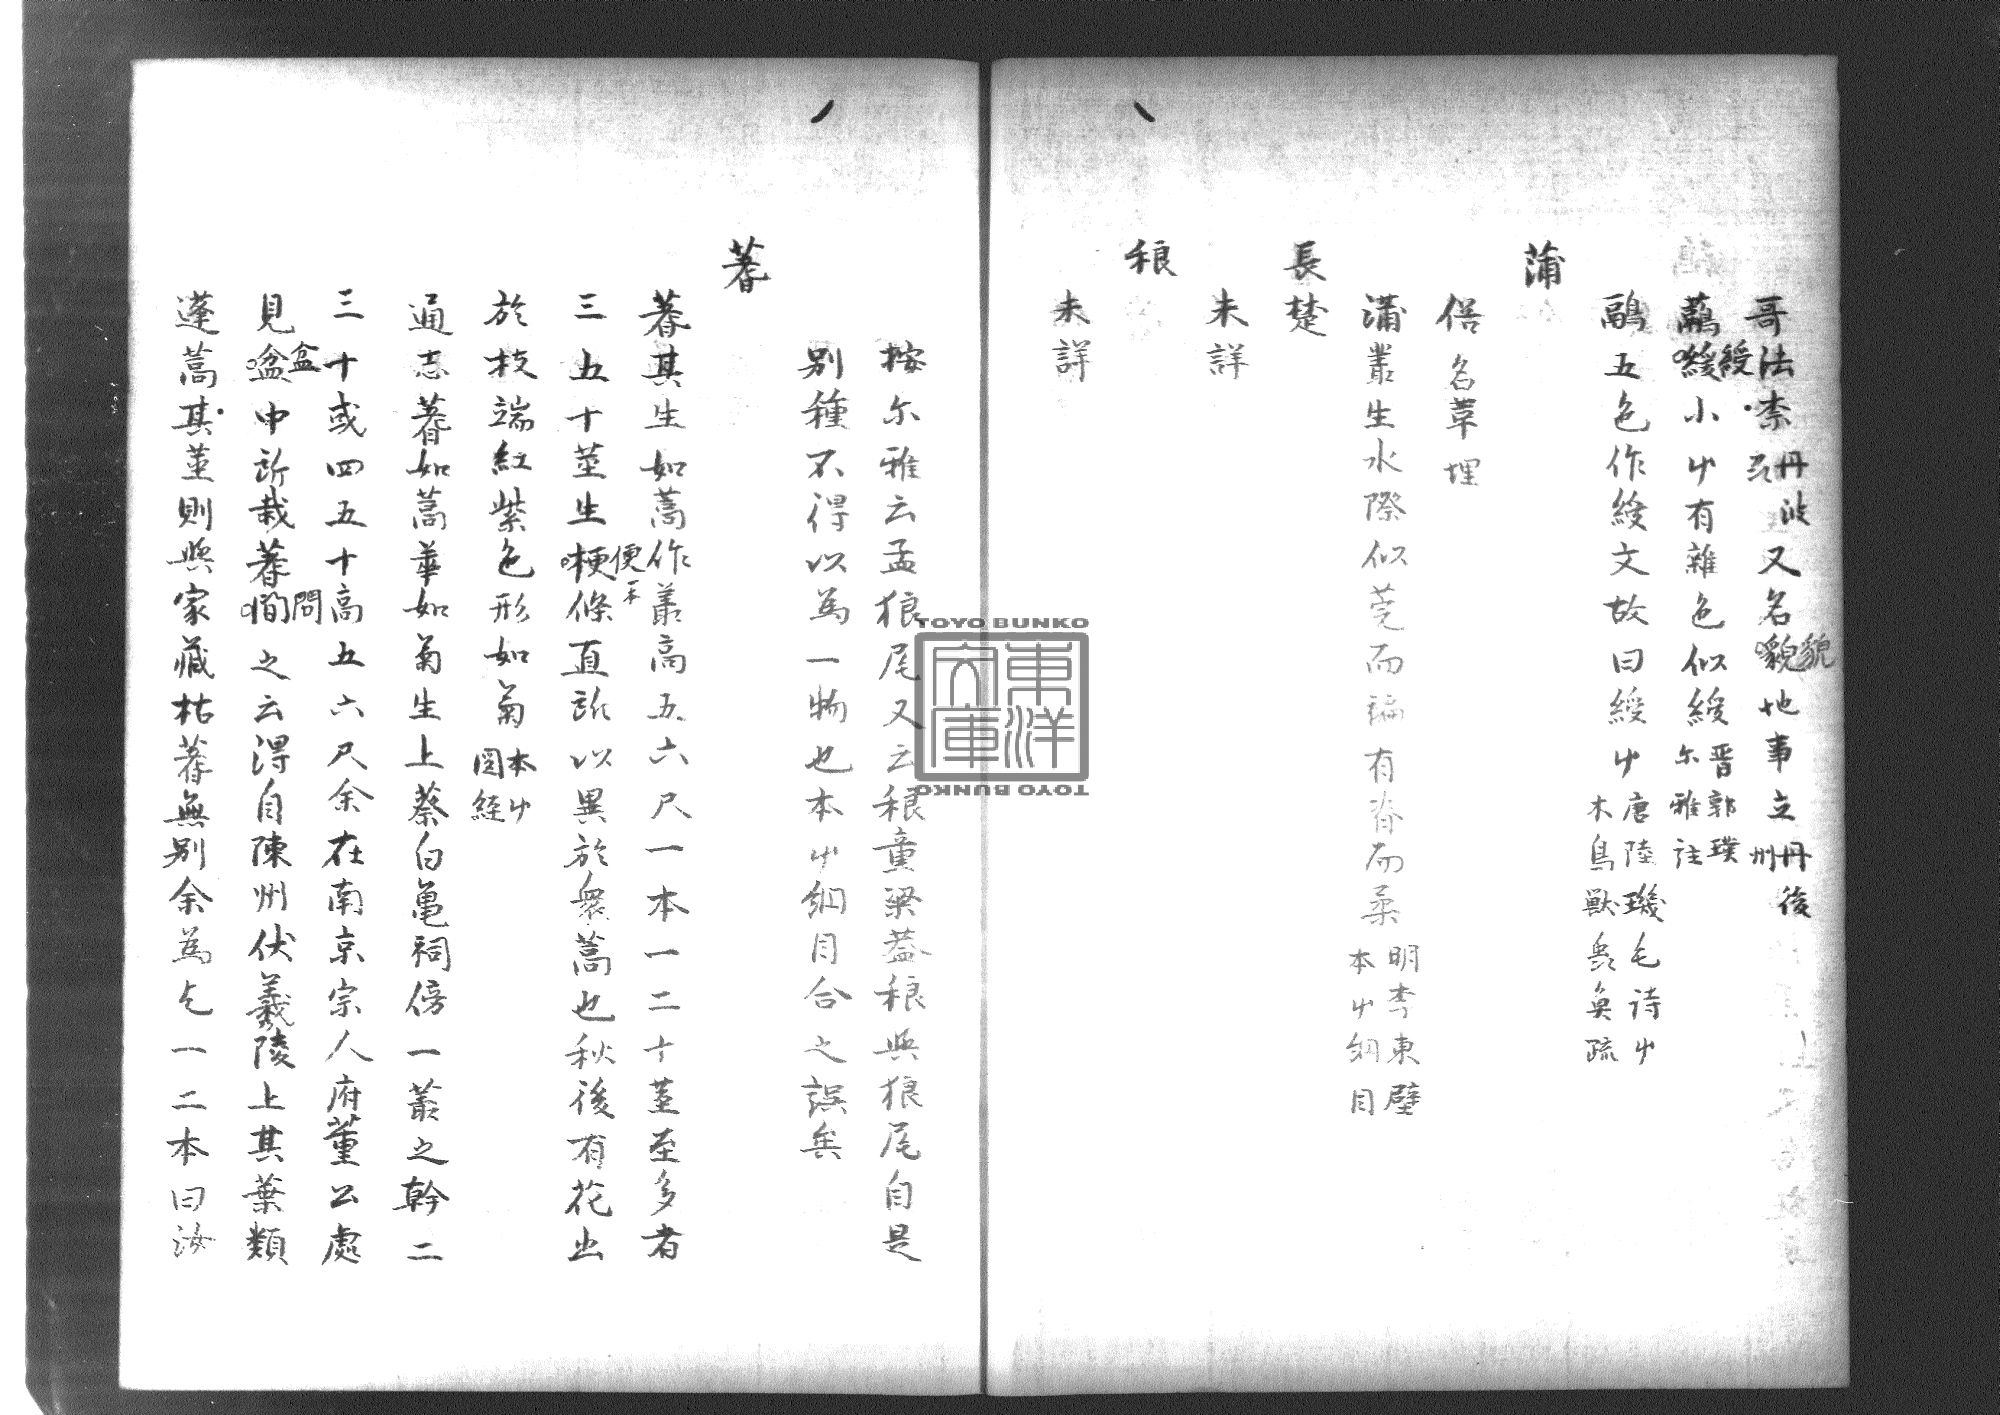 哥法柰丹波又名貌地事立丹後州
貌
虉綬小艸有雜色似綬晋郭璞尓雅註
綬
鷊五色作綬文故曰綬艸唐陸璣毛詩艸木鳥獸虫奐疏
蒲
俗名葦埋
蒲叢生水際似莞而褊有脊而柔明李東璧本艸綱目
長楚
未詳
稂
未詳
按尓雅云孟狼尾又云稂童粱葢稂與狼尾自是
別種不得以為一物也本艸綱目合之誤矣
蓍
蓍其生如蒿作叢高五六尺一本一二十莖至多者
三五十莖生梗條直所以異於衆蒿也秋後有花出
便一本
於枝端紅紫色形如菊本艸圖経
通志蓍如蒿華如菊生上蔡白亀祠傍一叢之幹二
三十或四五十高五六尺余在南京宗人府董公處
見盆中所栽蓍憪之云得自陳州伏羲陵上其葉類
盆
問
蓬蒿其莖則與家藏枯蓍無別余為乞一二本曰汝
TOYO BUNKO
東洋文庫
TOYO BUNKO